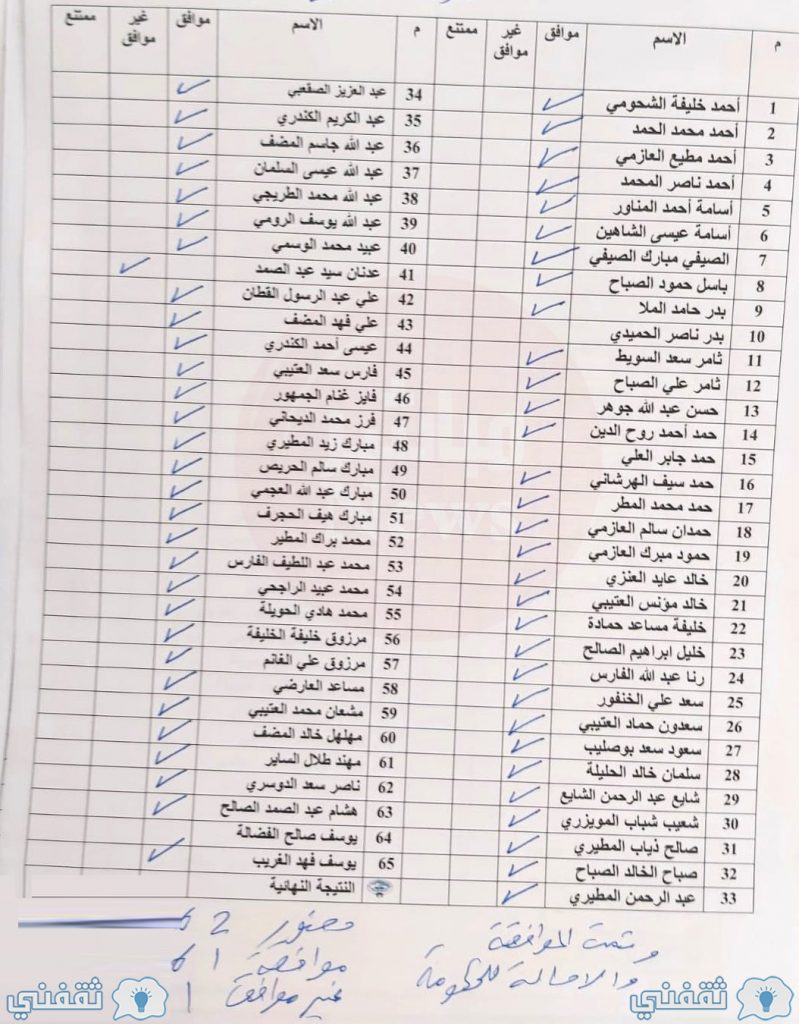 م الاسم موافق غير موافق ممتنع
1 أحمد خليفة الشحومي
2 أحمد محمد الحمد
3 أحمد مطيع العازمي
4 أحمد ناصر المحمد
5 أسامة أحمد المناور
6 أسامة عيسى الشاهين
7 الصيفي مبارك الصيفي
8 باسل حمود الصباح
9 بدر حامد الملا
10 بدر ناصر الحميدي
11 ثامر سعد السويط
12 ثامر علي الصباح
13 حسن عبد الله جوهر
14 حمد أحمد روح الدين
15 حمد جابر العلي
16 حمد سيف الهرشاني
17 حمد محمد المطر
18 حمدان سالم العازمي
19 حمود مبرك العازمي
20 خالد عايد العنزي
21 خالد مؤنس العتيبي
22 خليفة مساعد حمادة
23 خليل ابراهيم الصالح
24 رنا عبد الله الفارس
25 سعد علي الخنفور
26 سعدون حماد العتيبي
27 سعود سعد بوصليب
28 سلمان خالد الحليلة
29 شايع عبد الرحمن الشايع
30 شعيب شباب المويزري
31 صالح ذياب المطيري
32 صباح الخالد الصباح
33 عبد الرحمن المطيري
م الاسم موافق غير موافق ممتنع
34 عبد العزيز الصقعبي
35 عبد الكريم الكندري
36 عبد الله جاسم المضف
37 عبد الله عيسى السلمان
38 عبد الله محمد الطريجي
39 عبد الله يوسف الرومي
40 عبيد محمد الوسمي
41 عدنان سيد عبد الصمد
42 علي عبد الرسول القطان
43 علي فهد المضف
44 عيسى أحمد الكندري
45 فارس سعد العتيبي
46 فايز غنام الجمهور
47 فرز محمد الديحاني
48 مبارك زيد المطيري
49 مبارك سالم الحريص
50 مبارك عبد الله العجمي
51 مبارك هيف الحجرف
52 محمد براك المطير
53 محمد عبد اللطيف الفارس
54 محمد عبيد الراجحي
55 محمد هادي الحويلة
56 مرزوق خليفة الخليفة
57 مرزوق علي الغانم
58 مساعد العارضي
59 مشعان محمد العتيبي
60 مهلهل خالد المضف
61 مهند طلال الساير
62 ناصر سعد الدوسري
63 هشام عبد الصمد الصالح
64 يوسف صالح الفضالة
65 يوسف فهد الغريب
النتيجة النهائية
حضور 62
موافقة 61
غير موافق 1
وتمت الموافقة
والاحالة للحكومة
ثقفني
ثقفني